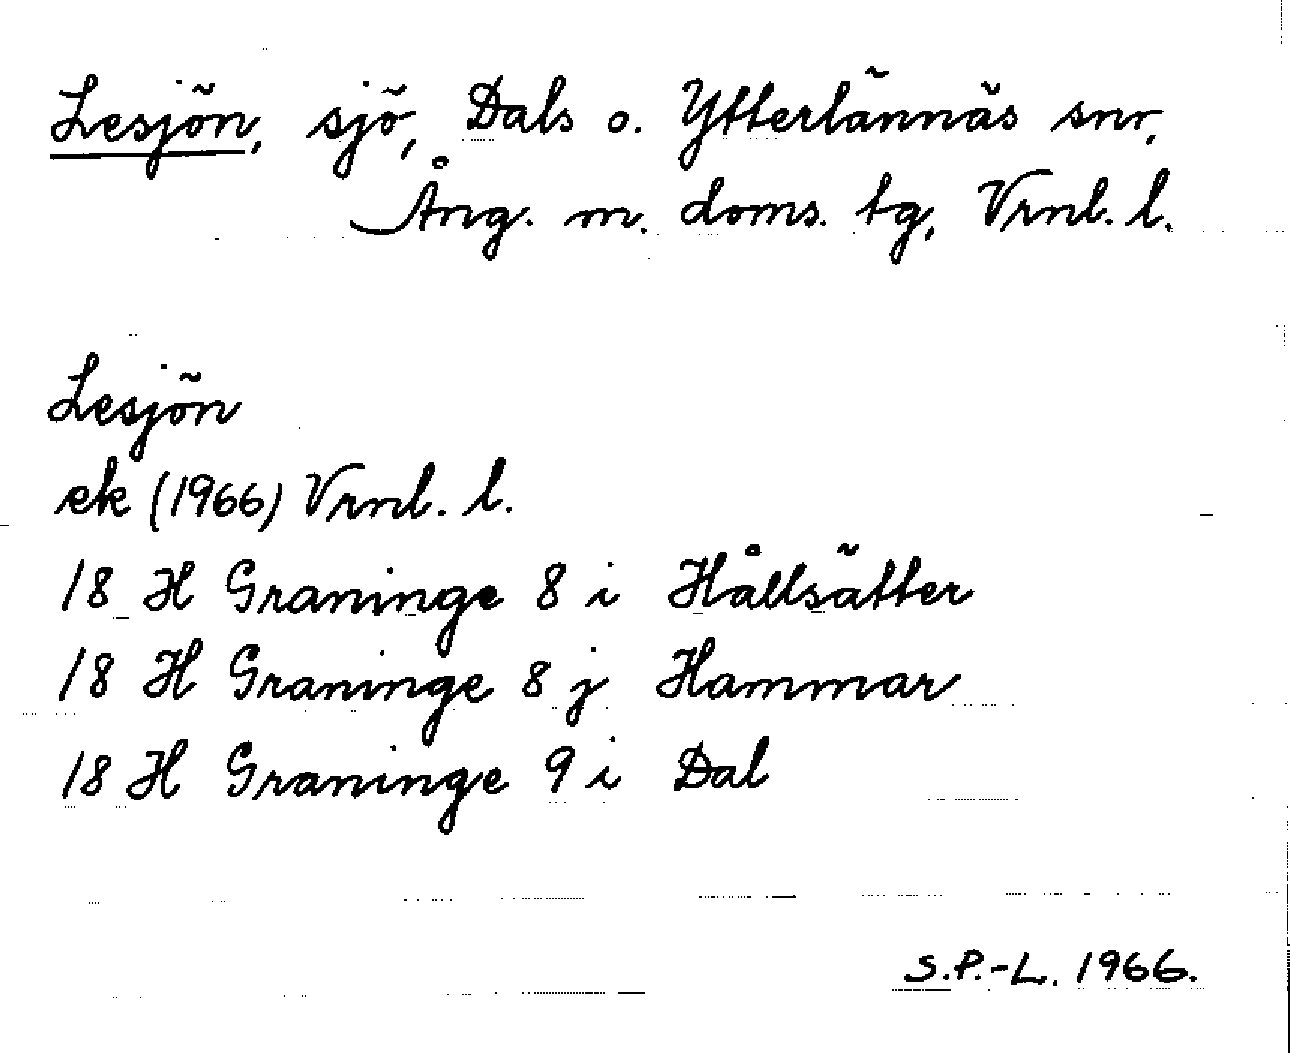 Lesjön, sjö, Dals o. Ytterlännäs snr,
Ång. m. doms. tg, Vrnl. l.
Lesjön
ek (1966) Vrnl. l.
18 H Graninge 8 i Hållsätter
18 H Graninge 8 j Hammar
18 H Graninge 9 i Dal
S.P.-L. 1966.